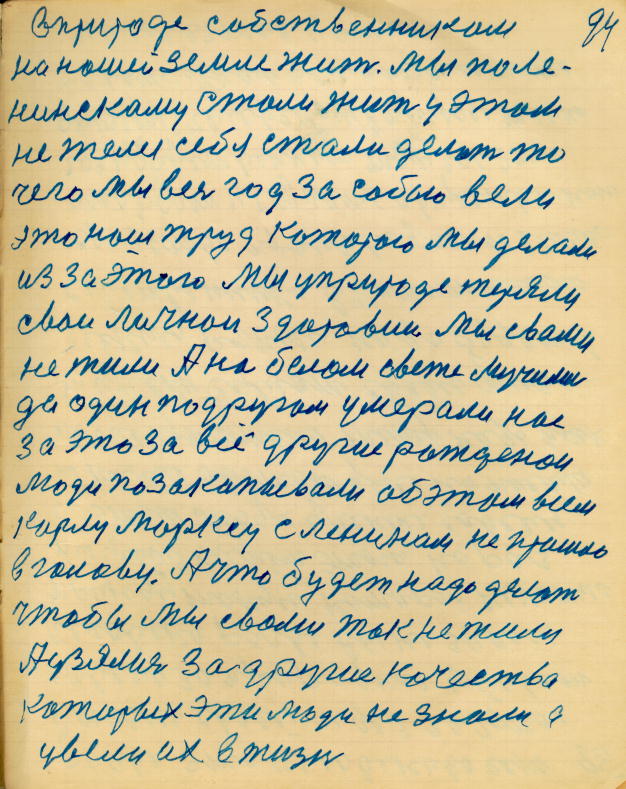 94
В природе собственником
на нашей земле жит. Мы поле-
нинскаму стали жит у этом
не жели себя стали делат то
чего мы век год за собою вели
это наш труд котороо мы делали
из за этого мы у природе теряли
свои личнои здоровии. Мы свами
не жили А на белом свете мучили
да один подругом умерали нас
за это за всё другие рожденои
люди позакапывали об этом всем
Карлу Марксу с Ленинам не пришло
в голову. А что будет надо делат
чтобы мы свами так не жили
А взялис за другие качества
которых эти люди не знали а
увели их в жизн